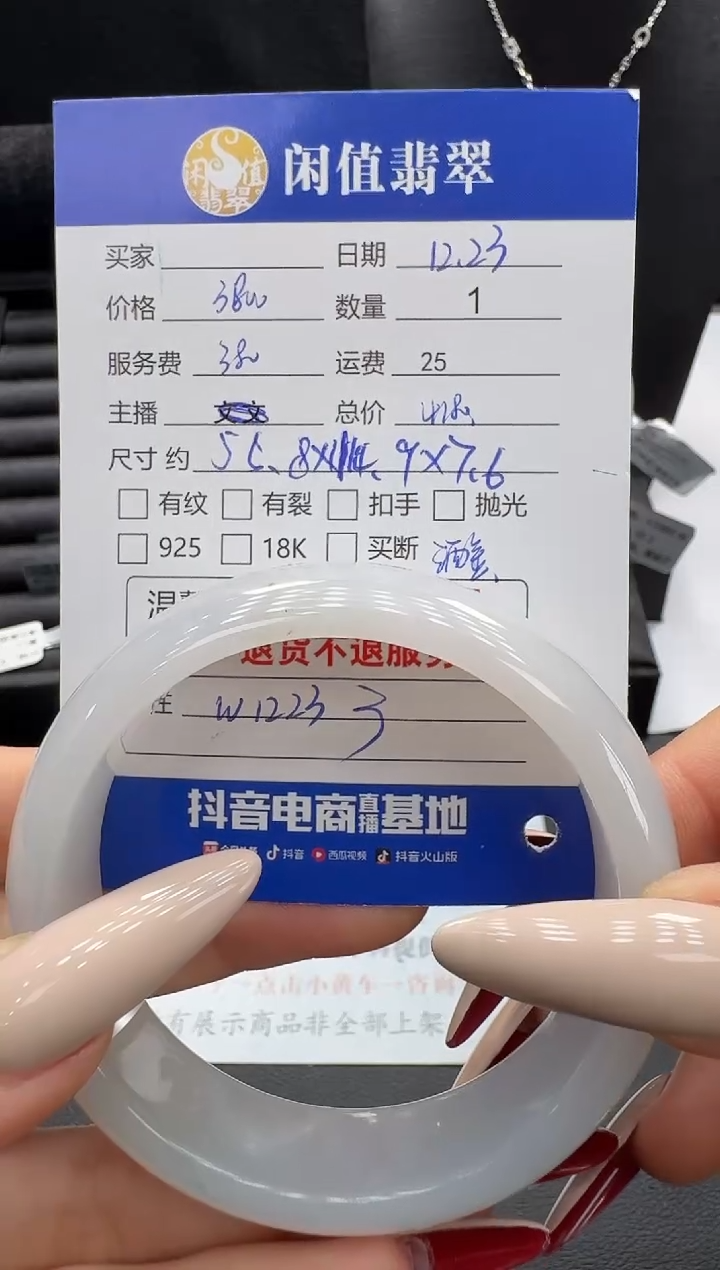 闲值翡翠
闲值翡翠
买家 日期 12.23
价格 3800 数量 1
服务费 380 运费 25
主播 文文 总价
尺寸 约 56.8X14.9X7.6
有纹 有裂 扣手 抛光
925 18K 买断
温
退货不退服务
W1223 3
抖音电商直播基地
抖音 西瓜视频 抖音火山版
点击小黄车
有展示商品非全部上架